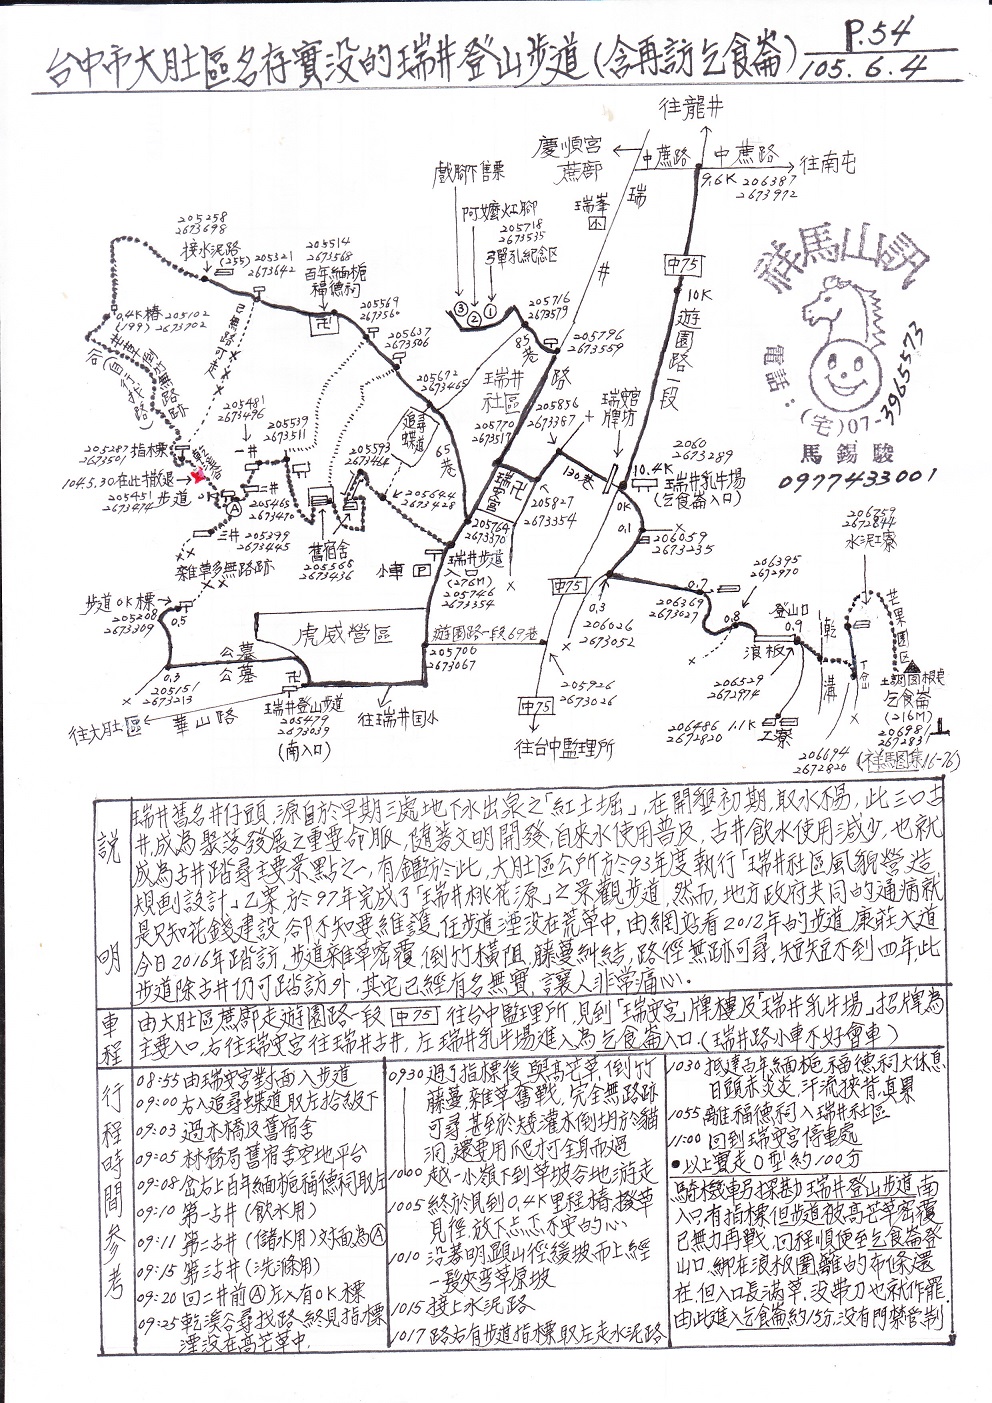 台中市大肚區名存實沒的瑞井登山步道(含再訪乞食崙)
P.54
105.6.4
往龍井
慶順宮
蔗廍
中蔗路
中蔗路
往南屯
9.6K 206387
2673972
戲腳下售票
阿嬤灶腳
205718
2673535
彈孔紀念区
瑞峯
小
瑞
井
路
中75
10K
遊園路一段
祥馬山訊
電話:(宅)07-3965573
馬錫駿
0977433001
205258
2673698
接水泥路
(255)
205321
2673642
205514
2673568
百年緬梔
福德祠
卍
205569
2673560
205637
2673506
0.4K樁
(199)
205102
2673702
205716
2673579
205796
2673559
85巷
瑞井
社區
205672
2673465
追尋蝶道
65巷
205770
2673517
205856
2673367
瑞安宮
牌坊
120巷
10.4K
瑞井乳牛場
(乞食崙入口)
2060
2673289
0K
0.1
205481
2673496
205539
2673511
205593
2673464
205644
2673428
205287
2673501
指標
104.5.30在此撤退
205451
2673474
步道
0K
一井
二井
205465
2673470
三井
205399
2673445
雜草多無路跡
舊宿舍
205568
2673436
瑞安宮
卍
205764
2673370
205827
2673354
206059
2673235
小車
P
瑞井步道
入口
(276M)
205746
2673354
中75
0.3
206026
2673052
步道0K標
205208
2673309
0.5
虎威營區
遊園路一段69巷
205706
2673067
公墓
公墓
0.3
205151
2673213
往大肚區
華山路
瑞井登山步道
205479
2673039
(南入口)
往瑞井国小
205926
2673026
中75
往台中監理所
206759
2672844
水泥工寮
206395
2672970
0.7
206369
2673027
0.8
登山口
0.9
浪板
乾溝
206529
2672974
206486
2672820
1.1K
工寮
芒果園区
乞食崙
(216M)
206981
2672831
206694
2672820
(祥馬图集16-76)
說明
瑞井舊名井仔頭,源自於早期三處地下水出泉之「紅土堀」,在開墾初期,取水不易,此三口古
井,成為聚落發展之重要命脈,隨著文明開發,自來水使用普及,古井飲水使用減少,也就
成為古井踏尋主要景點之一,有鑑於此,大肚區公所於93年度執行「瑞井社區風貌營造
規劃設計」乙案,於97年完成了「瑞井桃花源」之景觀步道,然而,地方政府共同的通病就
是只知花錢建設,卻不知要維護,任步道湮沒在荒草中,由網站看2012年的步道,康莊大道,
今日2016年踏訪,步道雜草密覆,倒竹橫阻,藤蔓糾結,路徑無跡可尋,短短不到四年,此
步道除古井仍可踏訪外,其它已經有名無實,讓人非常痛心。
車程
由大肚區蔗廍走遊園路一段 中75 往台中監理所,見到「瑞安宮」牌樓及「瑞井乳牛場」招牌為
主要入口,右往瑞安宮往瑞井古井,左 瑞井乳牛場進入為乞食崙入口.(瑞井路小車不好會車)
行程時間參考
08:55由瑞安宮對面入步道
09:00右入追尋蝶道取左拾級下
09:03 過木橋及舊宿舍
09:05 林務局舊宿舍空地平台
09:08 岔右上百年緬梔福德祠取左
09:10 第一古井(飲水用)
09:11 第二古井(儲水用)对面為Ⓐ
09:15 第三古井(洗滌用)
09:20 回二井前Ⓐ左入有0K標
09:25 乾溪谷尋找路,終見指標
湮沒在高芒草中.
0930 過了指標後,與高芒草,倒竹
藤蔓雜草奮戰,完全無路跡
可尋,甚至於矮灌木倒坍於貓
洞,還要用爬才可全身而過
1000 越一小嶺下到草坡谷地游走
1005 終於見到0.4K里程樁,撥草
見徑,放下忐忑不安的心
1010 沿著明顯山徑緩坡而上經
一髮夾彎草原坡
1015 接上水泥路
1017 路右有步道指標取左走水泥路
1030 抵達百年緬梔,福德祠大休息
日頭赤炎炎,汗流浹背,真累
1055 離福德祠入瑞井社區
11:00 回到瑞安宮停車處
●以上實走O型約100分
騎機車另探勘瑞井登山步道南
入口,有指標但步道被高芒草密覆
已無力再戰,回程順便至乞食崙登
山口,綁在浪板圍籬的布條還
在,但入口長滿草,沒帶刀也就作罷.
由此進入乞食崙約15分,沒有門禁管制